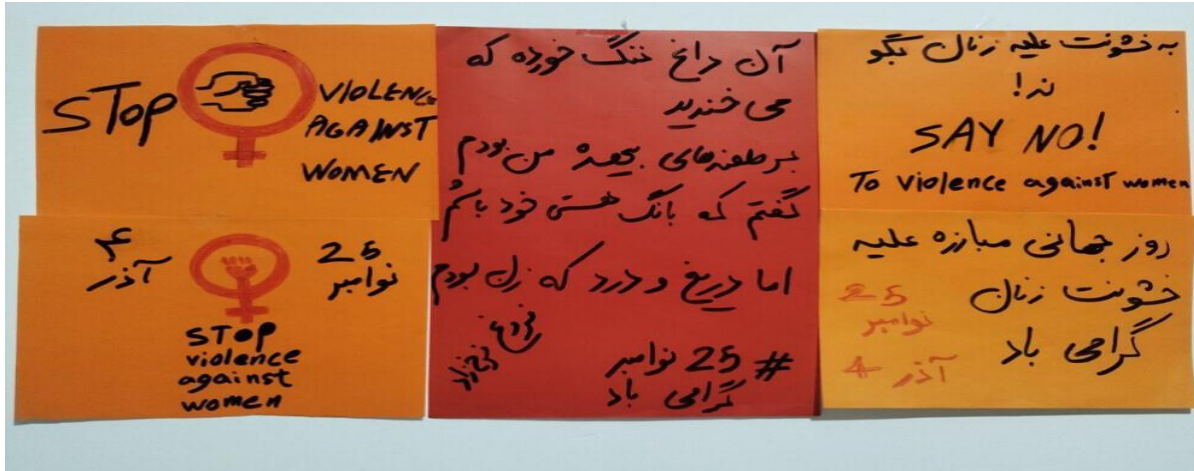 STOP
VIOLENCE
AGAINST
WOMEN
25
نوامبر
۴
آذر
STOP
violence
against
women
آن داغ ننگ خورده که
می خندید
بر طعنه های بیهده من بودم
گفتم که بانگ هستی خود باشم
اما دریغ و درد که زن بودم
فروغ فرخزاد
# 25 نوامبر
گرامی باد
به خشونت علیه زنان بگو
نه!
SAY NO!
To violence against women
روز جهانی مبارزه علیه
خشونت زنان
گرامی باد
25
نوامبر
4 آذر